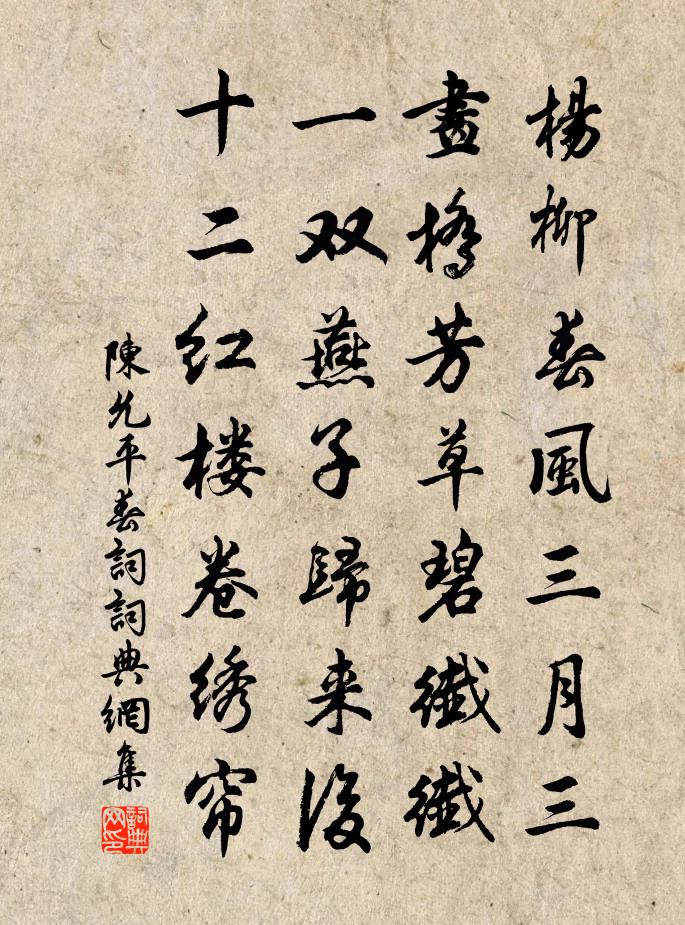 楊柳春風三月三
畫橋芳草碧纖纖
一双燕子歸来後
十二红楼卷绣帘
陳允平春詞詞典網集
詞典网印